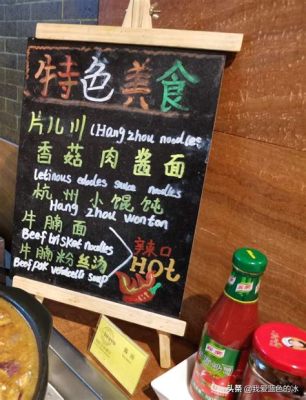 特色美食
片儿川 (Hang zhou noodles
香菇肉酱面
Letinous edodes sauce noodles
杭州小馄饨
Hang zhou wonton
牛腩面
Beef brisket noodles
牛腩粉丝汤
Beef pok vermicelli soup
辣口
HOT
头条 @我爱蓝色的冰